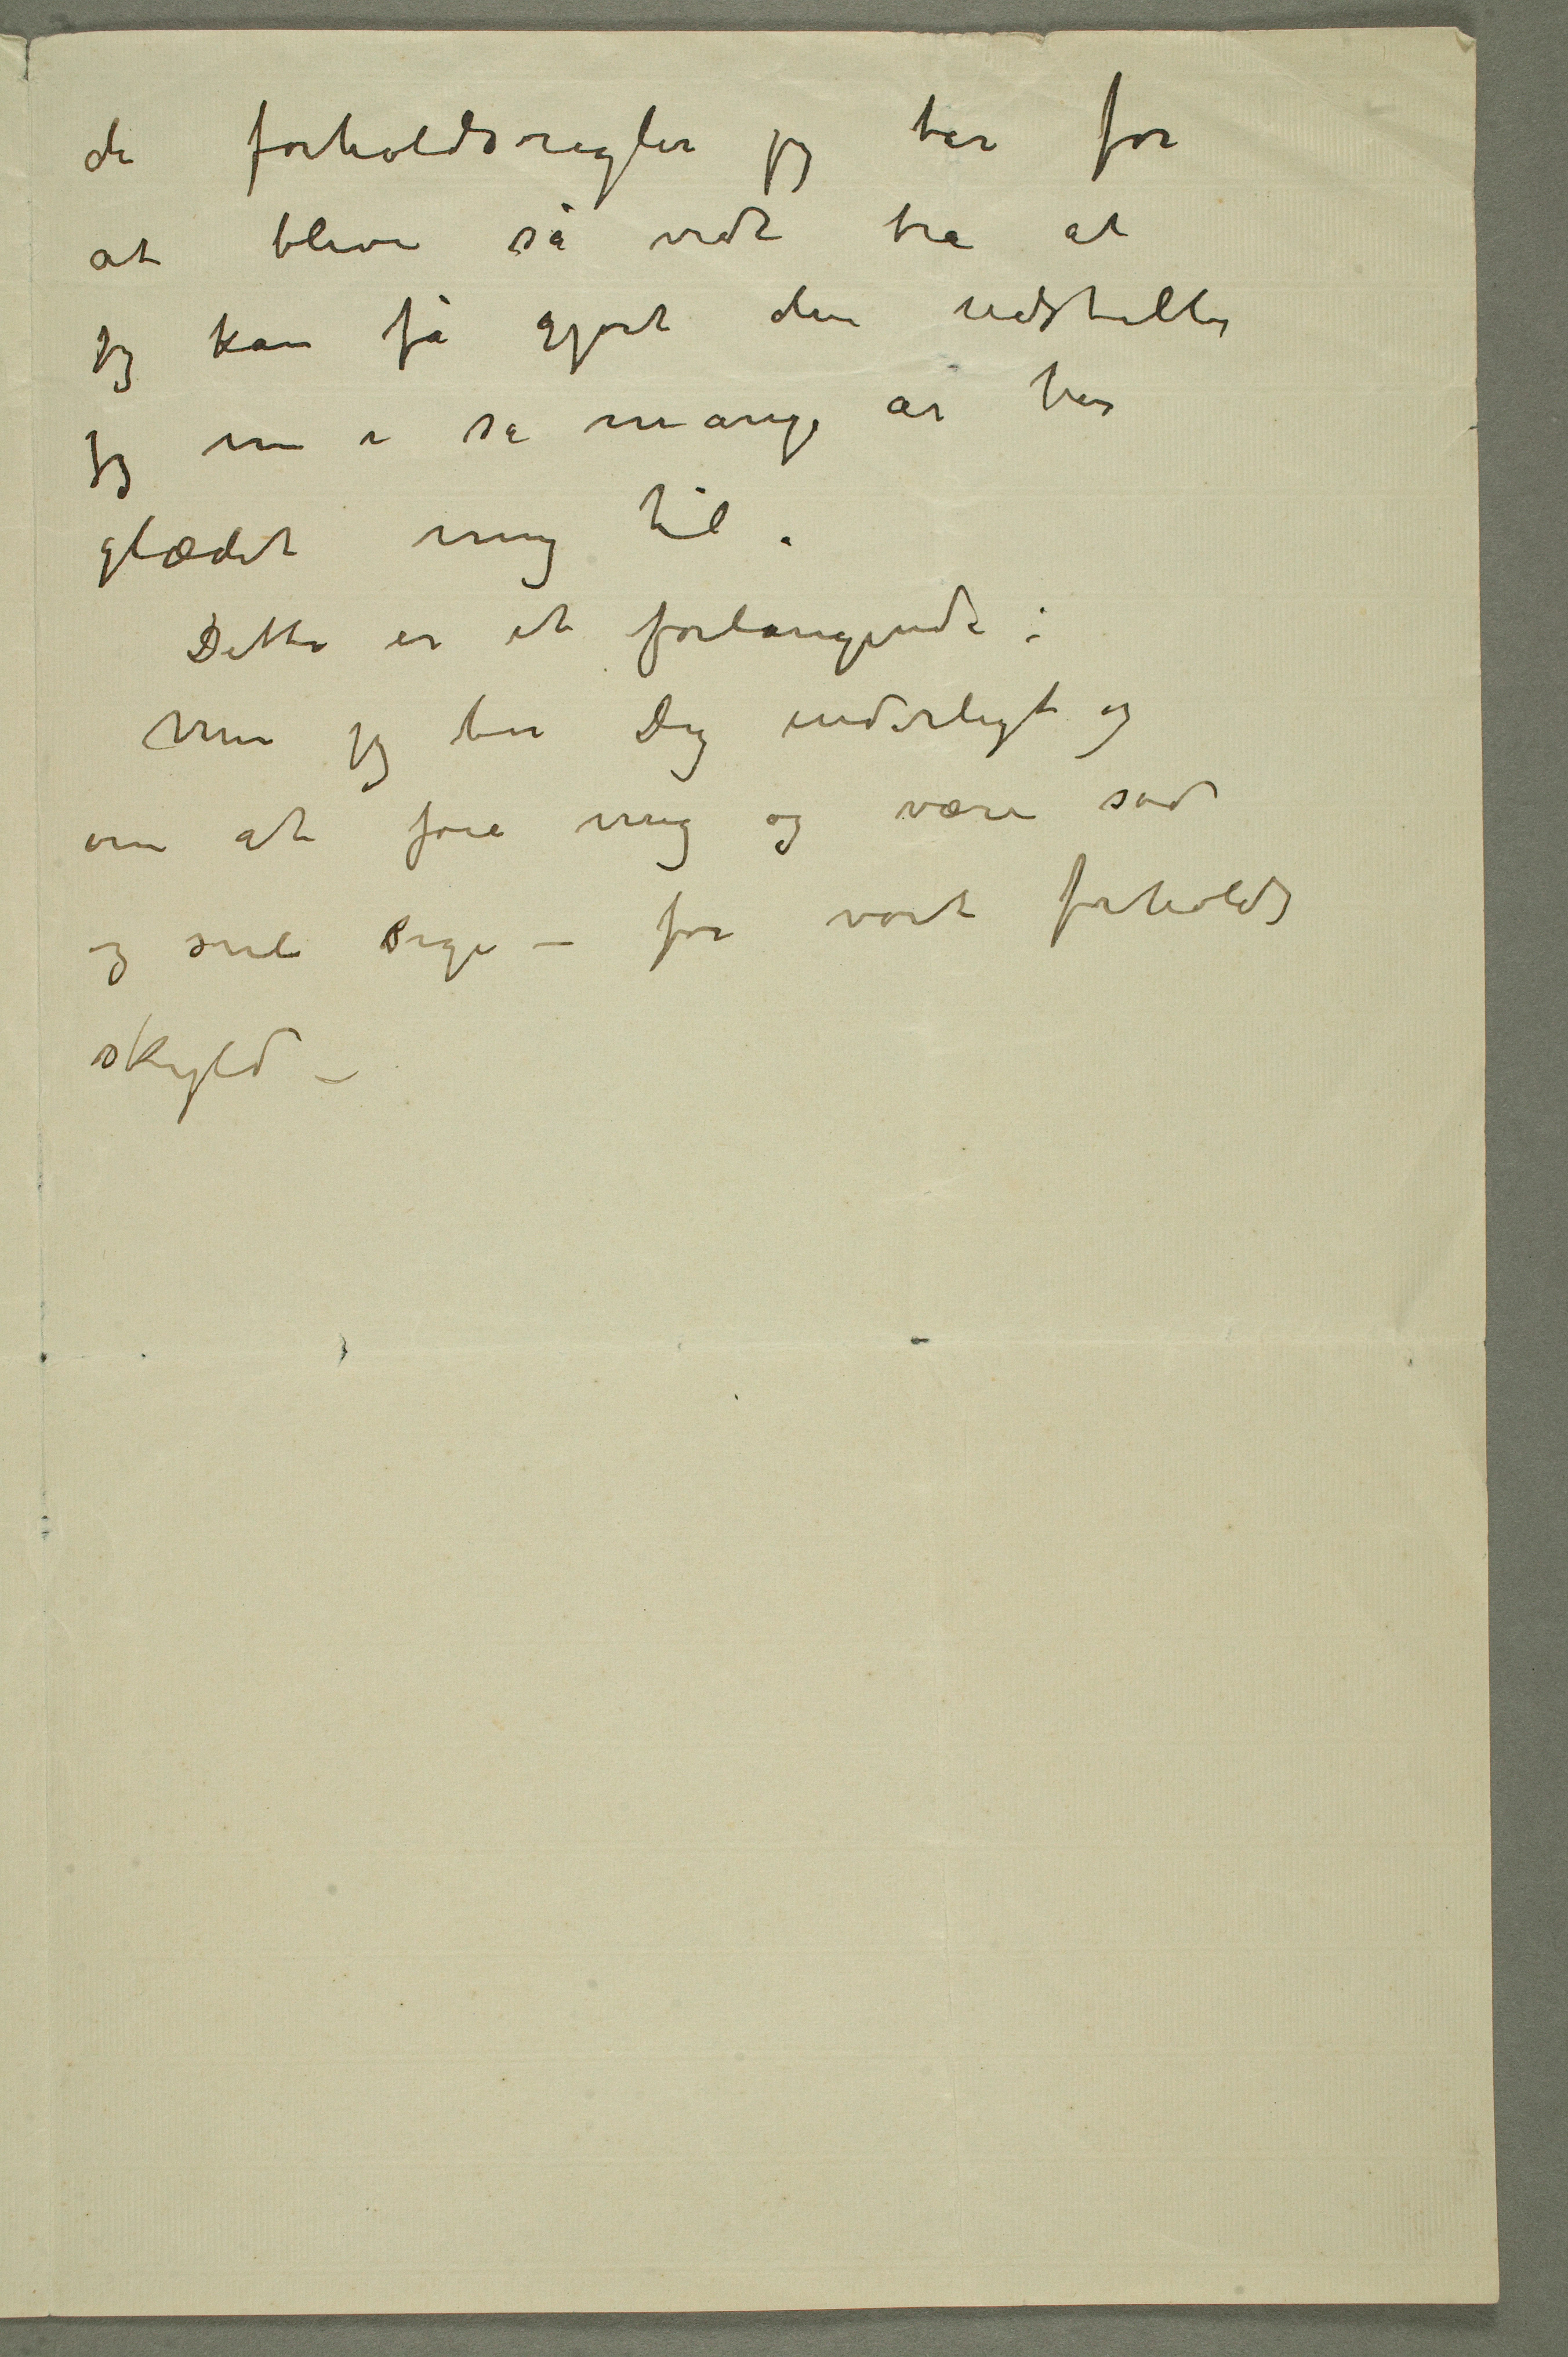 de forholdsregler jeg tar for
at blive så vidt bra at
jeg kan få gjort den udstilling
jeg nu i så mange år har
glædet mig til.
Dette er et forlangende:
Men jeg ber Dig inderligt og
om at føie mig og være sød
og snil Sige – for vort forholds
skyld –